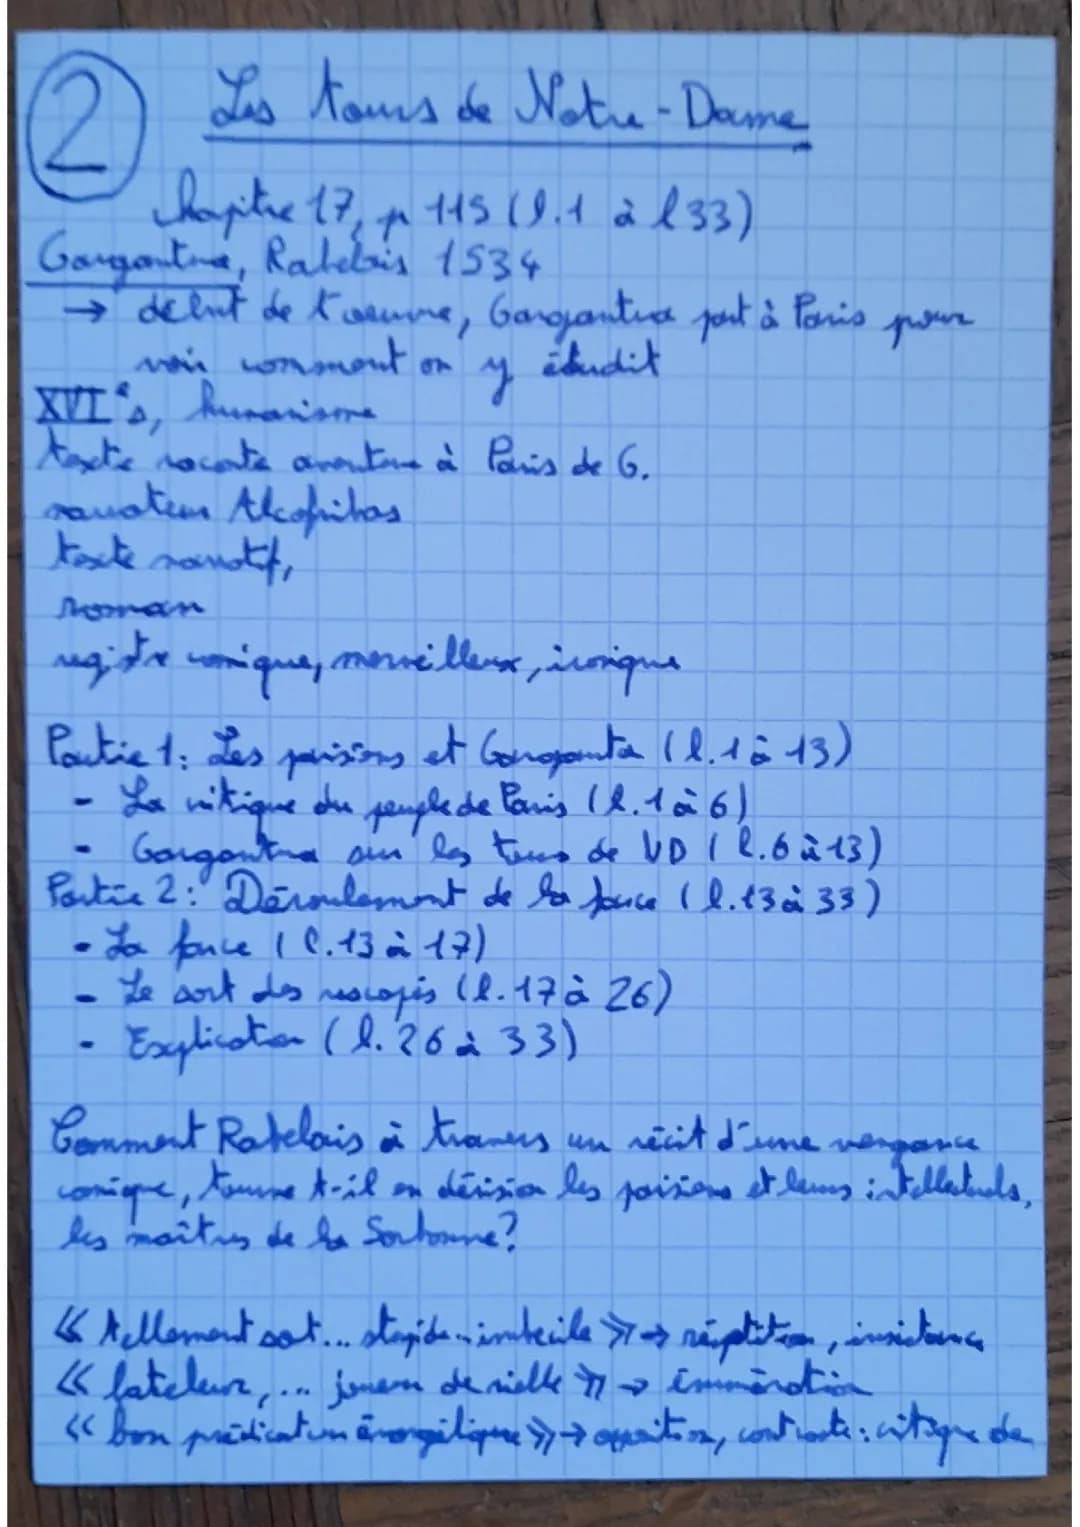 2
Les tours de Notre-Dame
Chapitre 17, p 115 (l.1 à l33)
Gargantua, Rabelais 1534
→ début de l'oeuvre, Gargantua part à Paris pour
voir comment on y étudit
XVIe s, humanisme
texte raconte aventure à Paris de G.
narrateur Alcofribas
texte narratif,
roman
registre comique, merveilleux, ironique
Partie 1: Les parisiens et Gargantua (l.1 à 13)
- La critique du peuple de Paris (l.1 à 6)
- Gargantua sur les tours de ND (l.6 à 13)
Partie 2: Déroulement de la farce (l.13 à 33)
- La farce (l.13 à 17)
- Le sort des rescapés (l.17 à 26)
- Explication (l.26 à 33)
Comment Rabelais à travers un récit d'une vengance
comique, tourne t-il en dérision les parisiens et leurs intellectuels,
les maîtres de la Sorbonne?
« tellement sot... stupide... imbécile » → répétition, insistance
« bateleur, ... joueur de vielle » → énumération
« bon prédicateur évangélique » → opposition, contraste: critique de